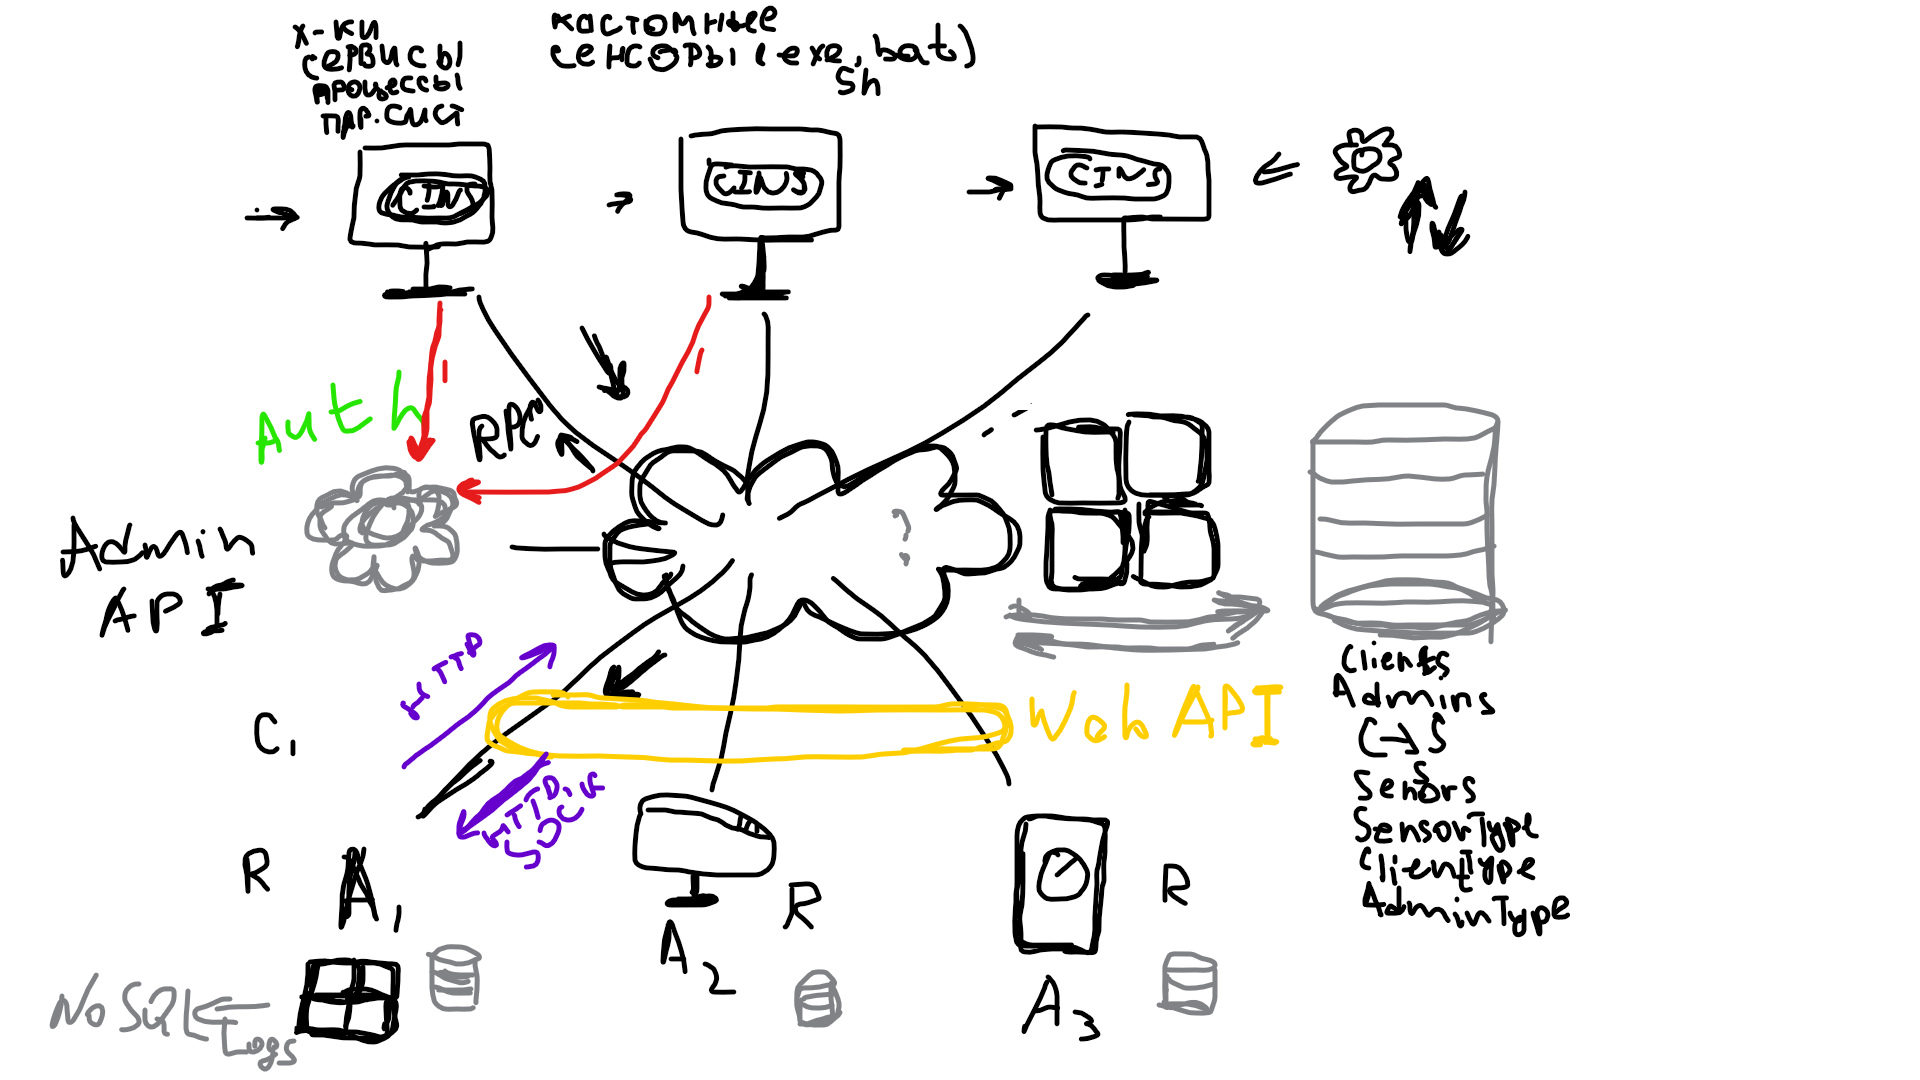 х-ки
сервисы
процессы
пар.сист
кастомные
сенсоры (exe, bat)
sh
CINS
CINS
CINS
Auth
RPC
Admin
API
HTTP
C1
Web API
HTTP,
SOCK
Clients
Admins
C→S
Sensors
SensorType
ClientType
AdminType
R
A1
R
A2
R
A3
NoSQL
Logs